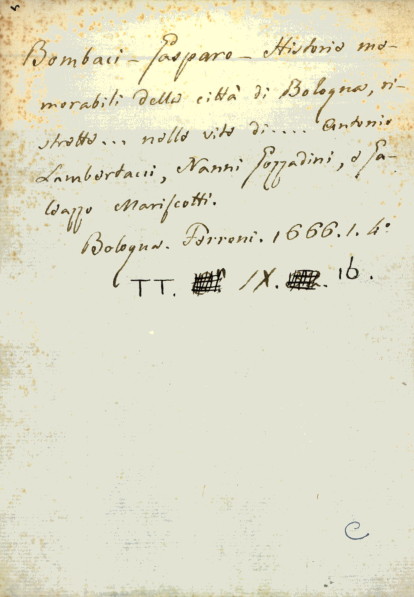 Bombaci - Gasparo - Historie me-
morabili della città di Bologna, ri-
strette... nelle vite di.... Antonio
Lambertacci, Nanni Gozzadini, e Ga-
leazzo Mariscotti.
Bologna. Ferroni. 1666. 1. 4°
TT. IX. 16.
C